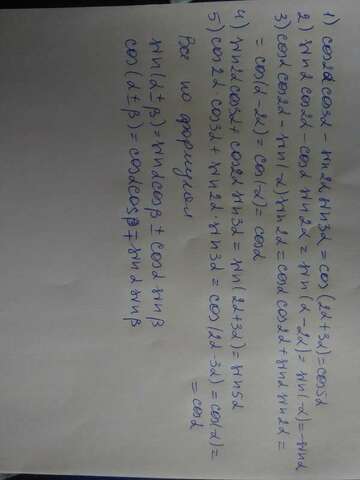 1) cos2α cos3α - sin2α sin3α = cos(2α+3α) = cos5α
2) sinα cos2α - cosα sin2α = sin(α-2α) = sin(-α) = -sinα
3) cosα cos2α - sin(-α) sin2α = cosα cos2α + sinα sin2α =
= cos(α-2α) = cos(-α) = cosα
4) sin2α cos3α + cos2α sin3α = sin(2α+3α) = sin5α
5) cos2α cos3α + sin2α · sin3α = cos(2α-3α) = cos(-α) =
= cosα
Все по формулам
sin(α±β) = sinα cosβ ± cosα sinβ
cos(α±β) = cosα cosβ ∓ sinα sinβ